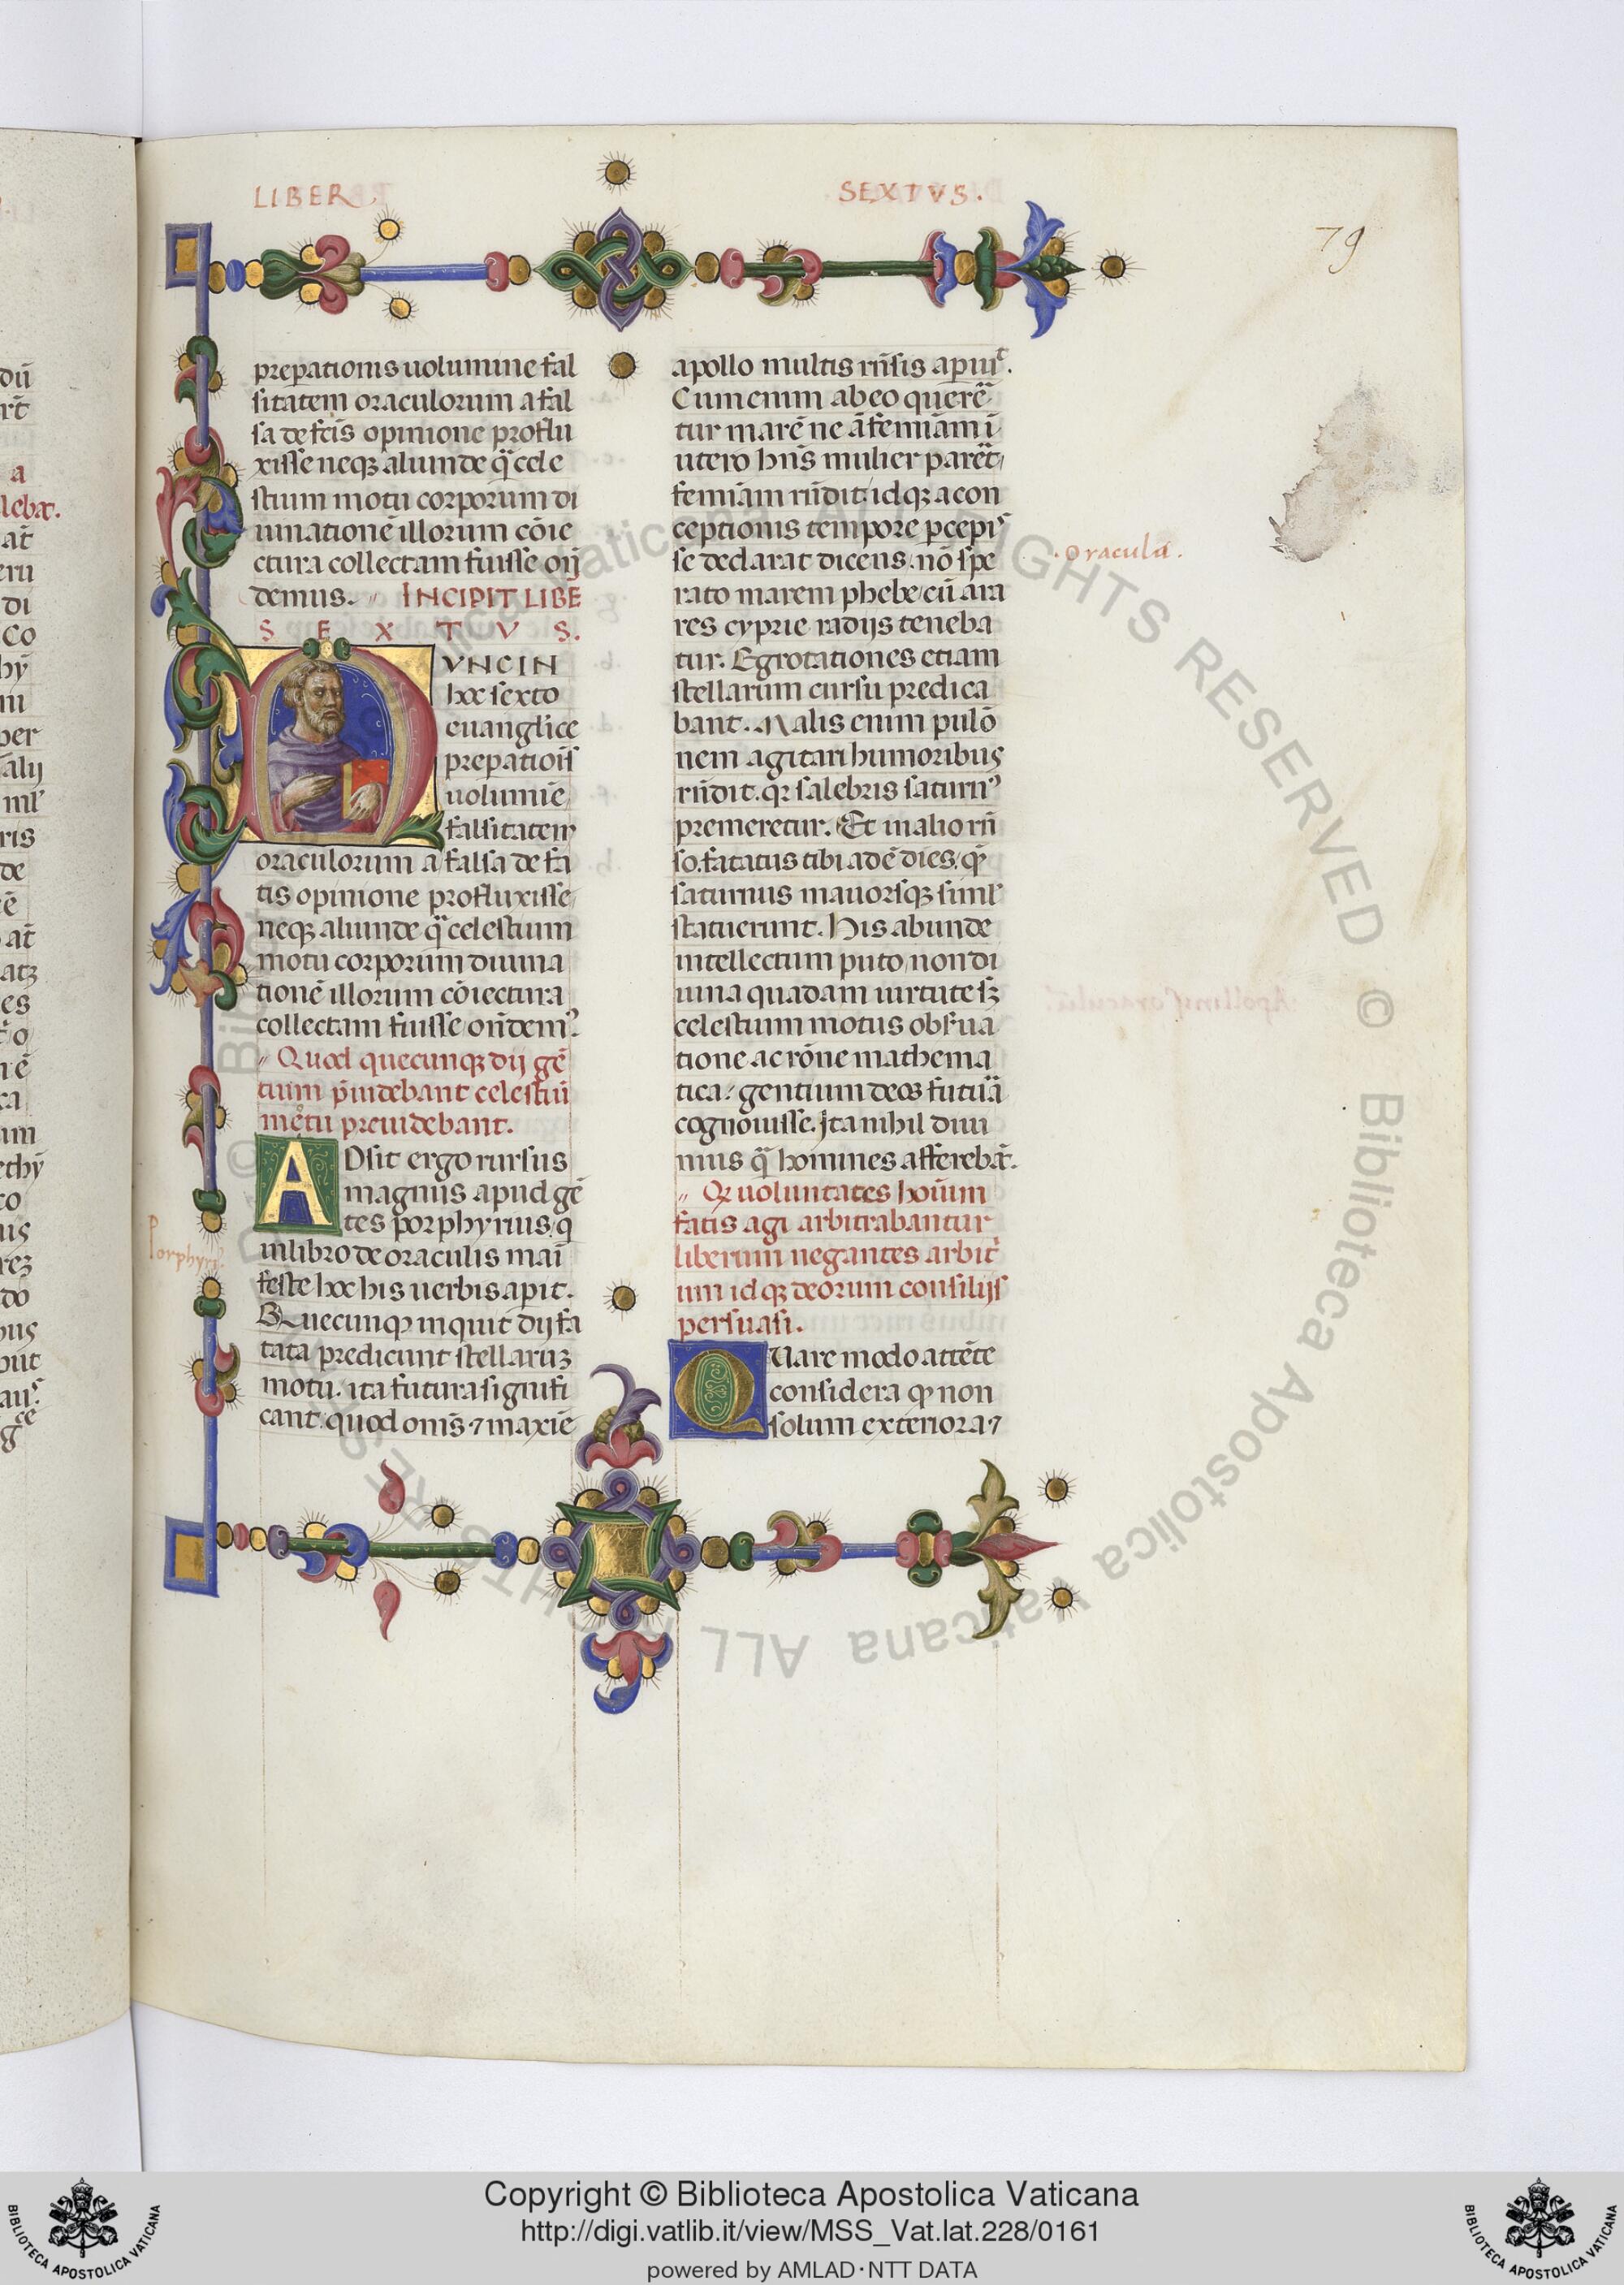 LIBER
SEXTVS.
79
prepationis uolumine fal
sitatem oraculorum a fal
sa de fctis opinione proflu
xisse neqꝫ aliunde q̃ cele
stium motu corporum di
uinatione illorum cōie
ctura collectam fuisse oñ
demus. INCIPIT LIBE
S E X T V S.
VNC IN
hoc sexto
euanglice
prepatiois
uolumīe
falsitatem
oraculorum a falsa de fa
tis opinione profluxisse
neqꝫ aliunde q̃ celestium
motu corporum diuina
tionē illorum cōiectura
collectam fuisse oñdemꝰ.
Quod quecunqꝫ dij gē
tium p̃uidebant celestiū
motu preuidebant.
ADsit ergo rursus
magnus apud gē
tes porphyrius, q
in libro de oraculis mai
feste hoc his uerbis apit.
Quecunqꝫ inquit dij fa
tata predicunt stellarūꝫ
motu. ita futura signifi
cant. quod oms̄ ⁊ maxīe
Porphyriꝰ.
apollo multis rn̄sis apuit.
Cum enim ab eo querer̃
tur marē ne ā femiām ī
utero hn̄s mulier parēt,
femiām rn̄dit: idqꝫ a con
ceptionis tempore p̱cepis
se declarat dicens. nō spe
rato marem phebe, cū ara
res cyprie radijs teneba
tur. Egrotationes etiam
stellarum cursu predica
bant. Malis enim pulō
nem agitari humoribus
rn̄dit. qꝛ salebris saturnꝰ
premeretur. Et in alio rn̄
so. fatatus tibi adē dies, qm̄
saturnus mauorsqꝫ siml'
statuerunt. His abunde
intellectum puto, non di
uina quadam uirtute sꝫ
celestium motus obs̱ua
tione ac rōne mathema
tica: gentium deos futuᷓa
cognouisse. Ita nihil diui
nius q̃ homines afferebāt.
Qꝛ uoluntates hoīum
fatis agi arbitrabantur
liberum negantes arbitr̃i
um idqꝫ deorum consilijs
persuasi.
QUare modo attēte
considera qꝫ non
solum exteriora ⁊
. oracula .
Copyright © Biblioteca Apostolica Vaticana
http://digi.vatlib.it/view/MSS_Vat.lat.228/0161
powered by AMLAD·NTT DATA
BIBLIOTECA APOSTOLICA VATICANA
BIBLIOTECA APOSTOLICA VATICANA
© Biblioteca Apostolica Vaticana ALL RIGHTS RESERVED